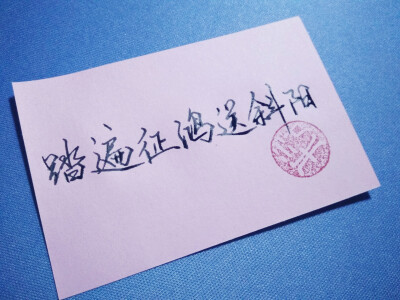 踏遍征鸿送斜阳